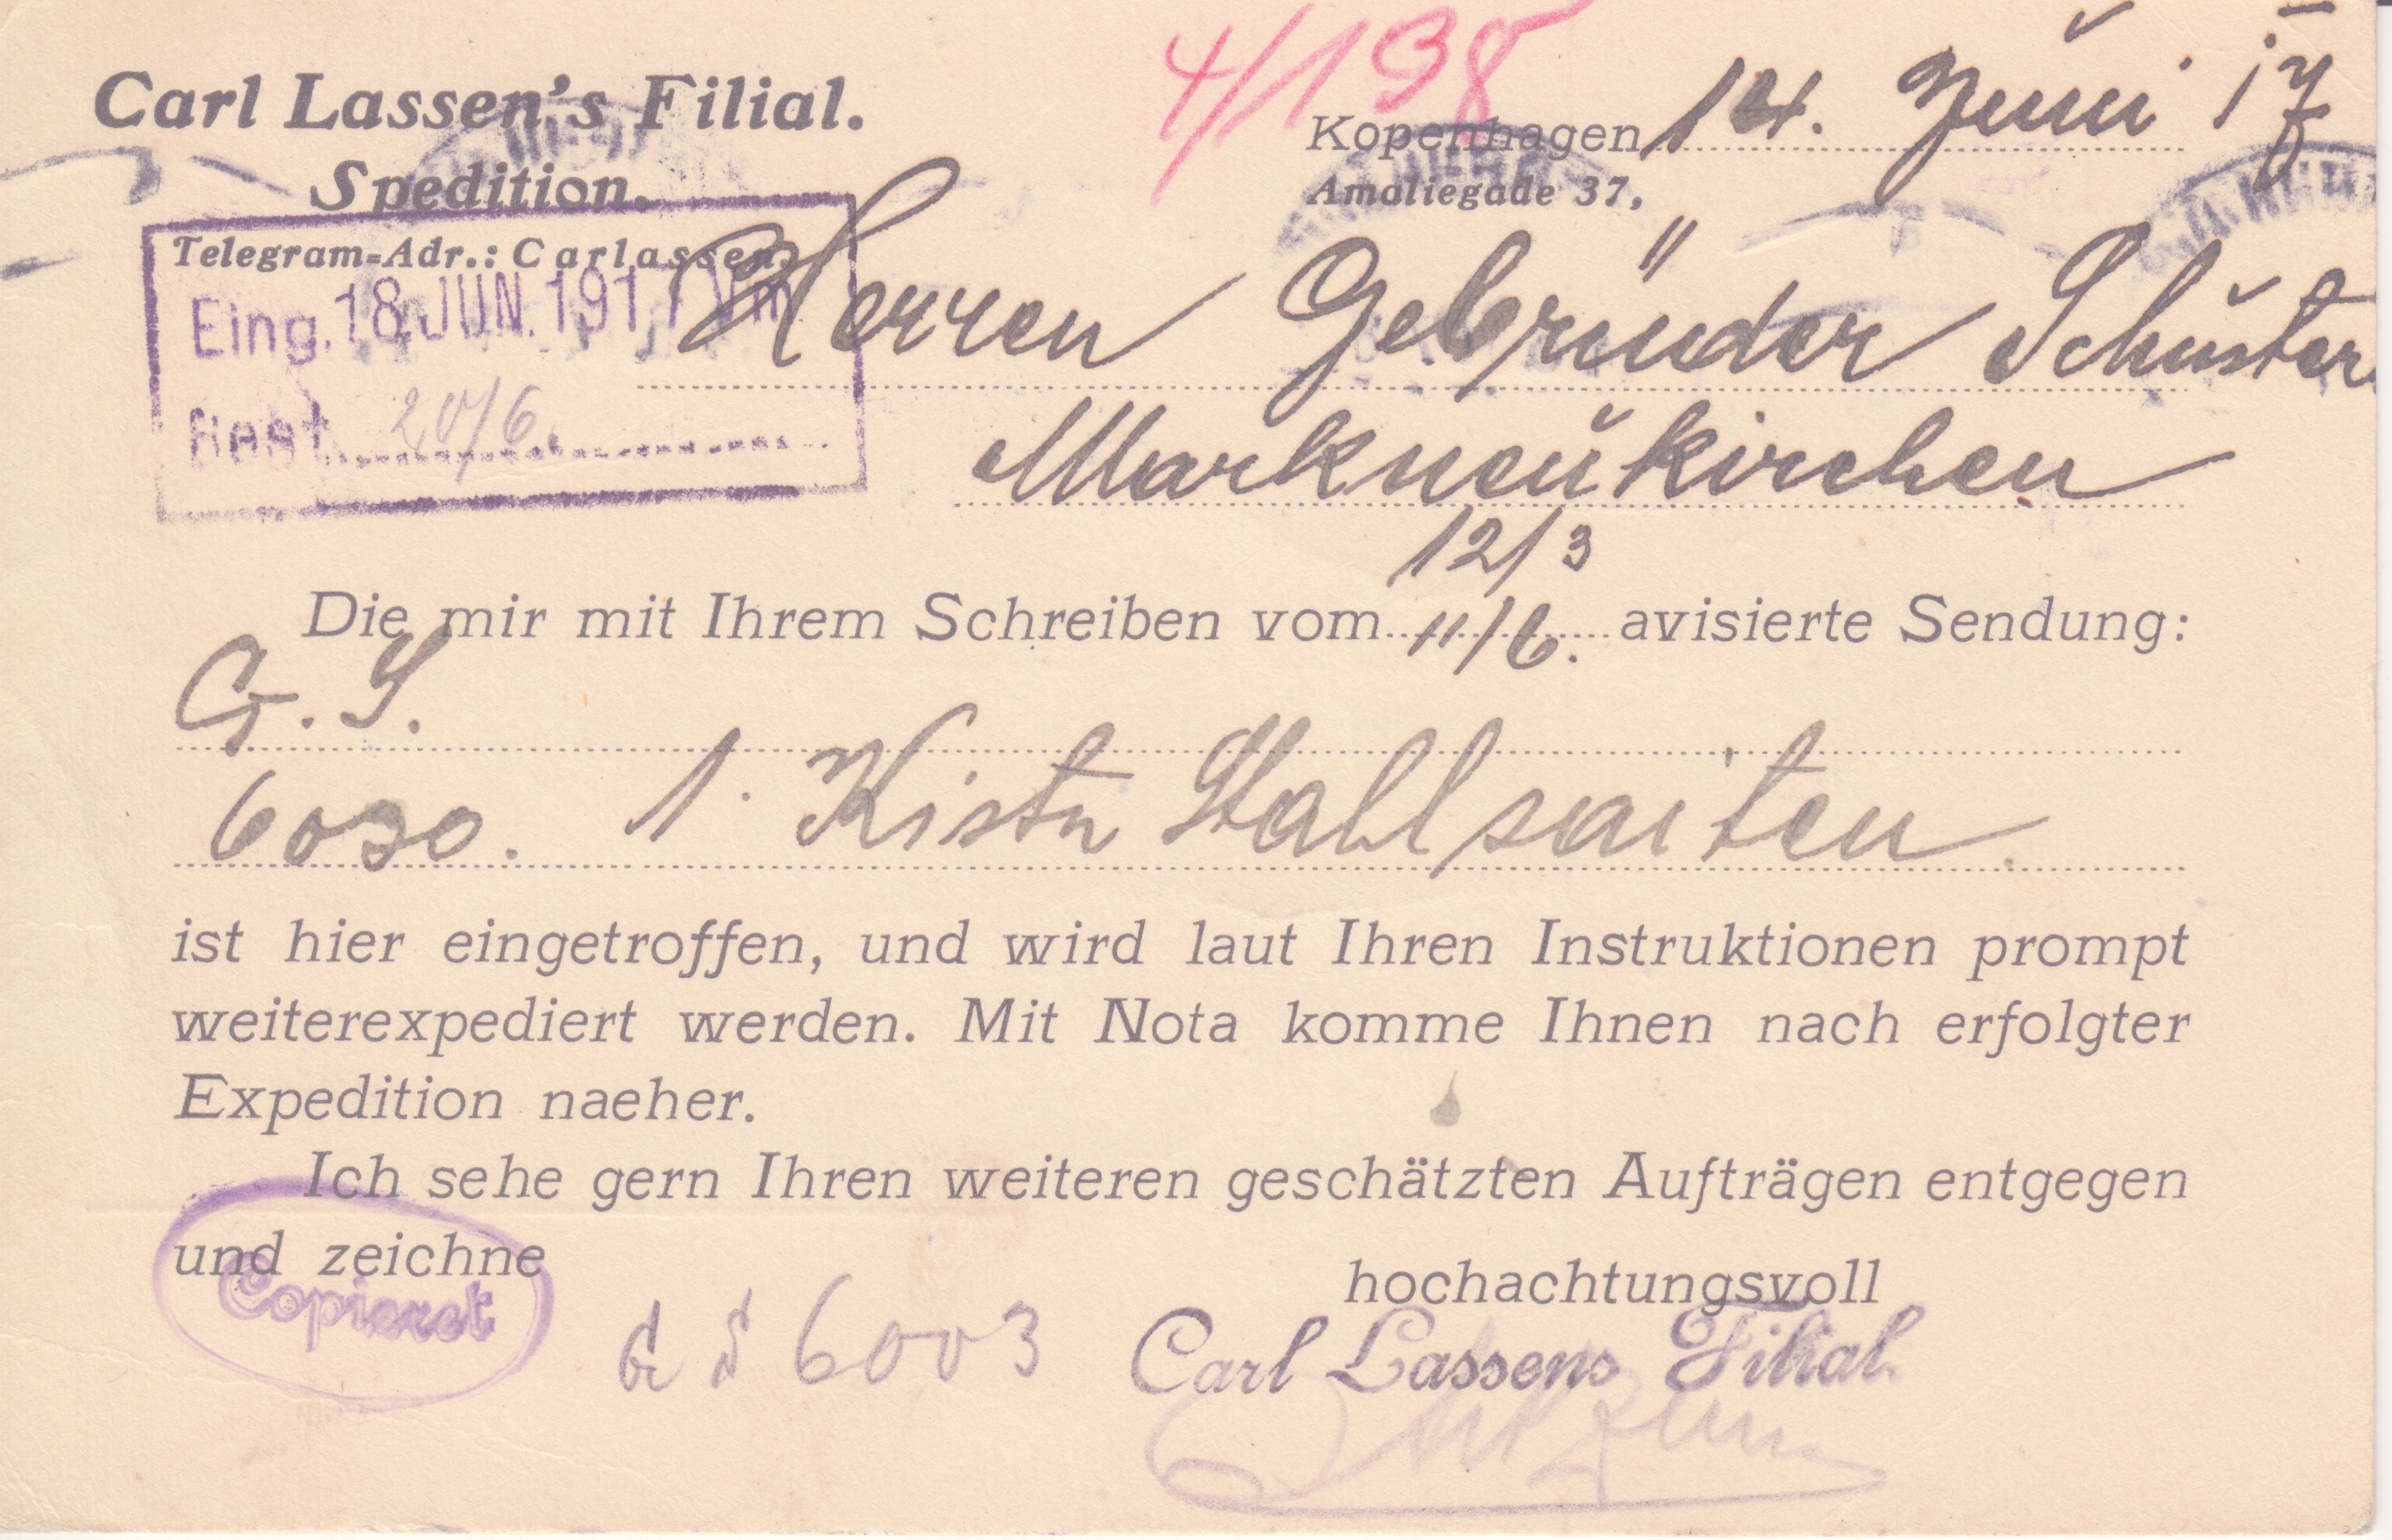 Carl Lassen's Filial.
Spedition.
Telegram=Adr.: Carlassen.
4/138
Kopenhagen, 14. Juni 17
Amaliegade 37,
Eing. 18. JUN. 1917 Vm.
Best. 20/6.
Herren Gebrüder Schuster
Markneukirchen
12/3
Die mir mit Ihrem Schreiben vom 11/6. avisierte Sendung:
G. S.
6030. 1. Kiste Stahlsaiten.
ist hier eingetroffen, und wird laut Ihren Instruktionen prompt
weiterexpediert werden. Mit Nota komme Ihnen nach erfolgter
Expedition naeher.
Ich sehe gern Ihren weiteren geschätzten Aufträgen entgegen
und zeichne
hochachtungsvoll
Copieret
G S 6003
Carl Lassens Filial.